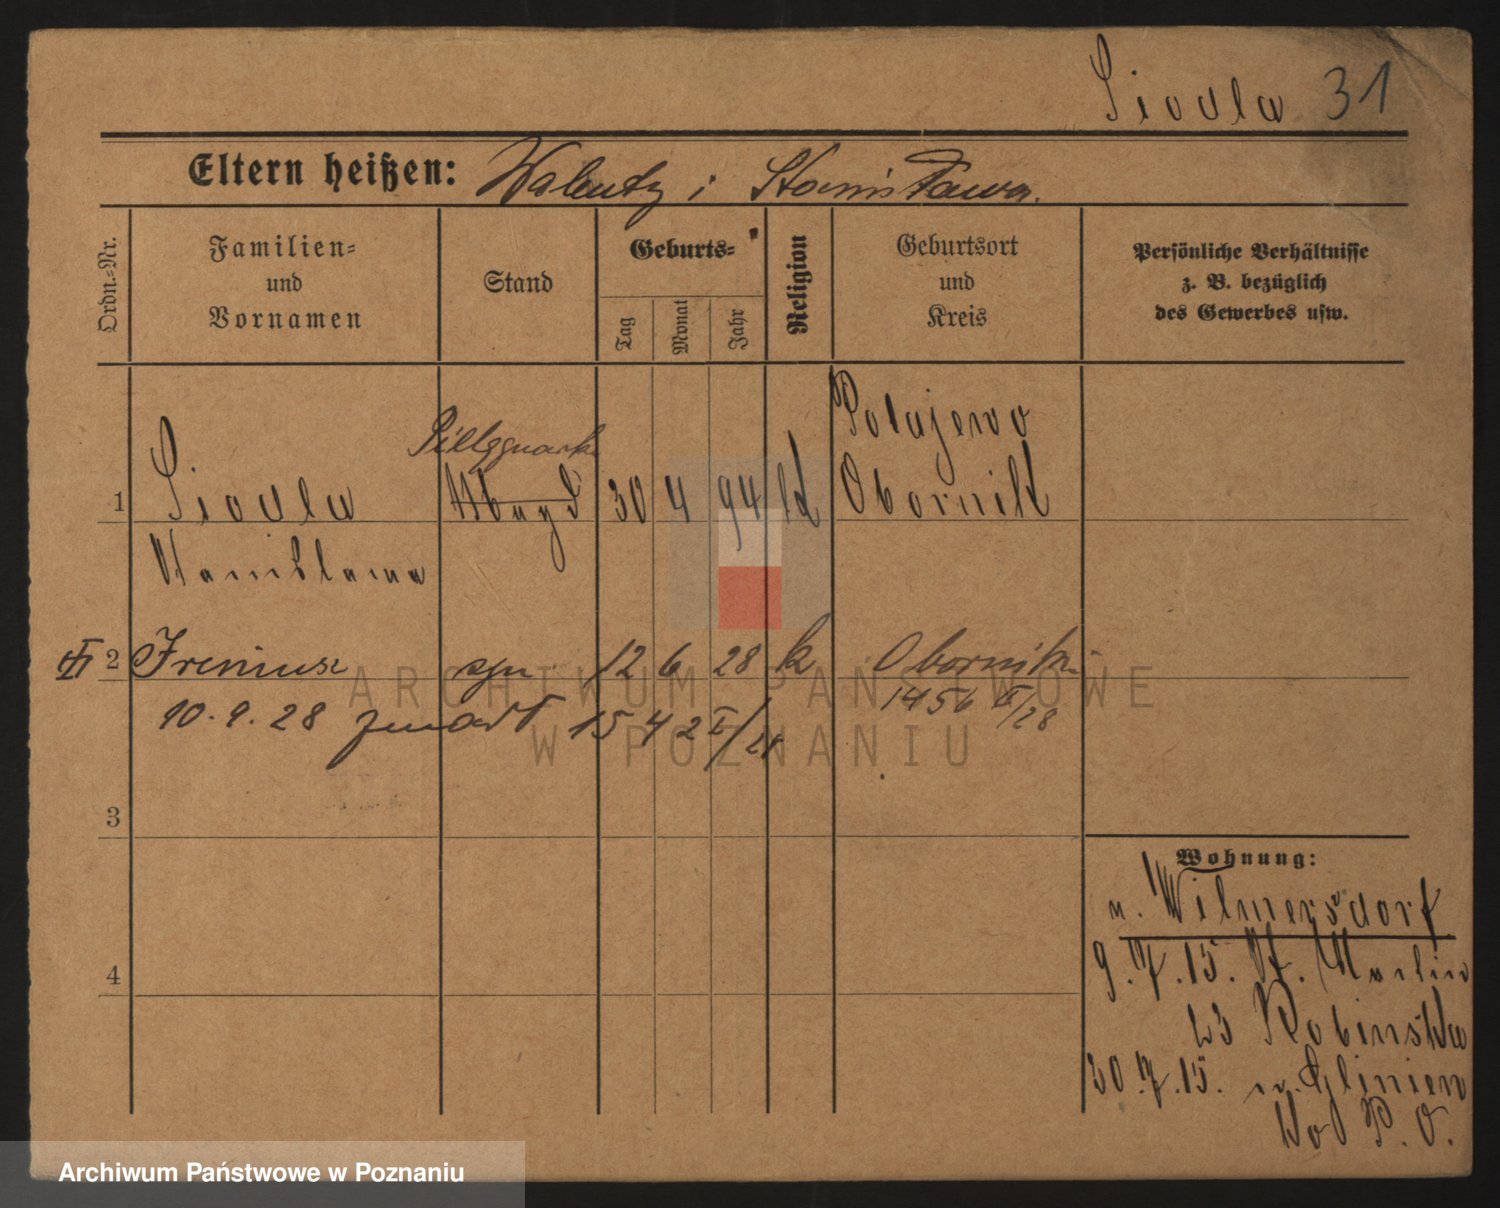 Siodla 31
Eltern heißen: Walenty i Stanisława.
Ordn.-Nr.
Familien-
und
Vornamen
Stand
Geburts-
Tag
Monat
Jahr
Religion
Geburtsort
und
Kreis
Persönliche Verhältnisse
z. B. bezüglich
des Gewerbes usw.
1
Siodla
Stanislawa
Magd
30 4 94 kt
Polajewo
Obornik
2 Ireniusz
syn
12 6 28 k
Obornik
10.9.28 zmarł
1456 II/28
3
4
Wohnung:
n. Wilmersdorf
9.7.15. St. Martin
23 Robinska
30.7.15. n. Glinien
P. O.
ARCHIWUM PAŃSTWOWE
W POZNANIU
Archiwum Państwowe w Poznaniu